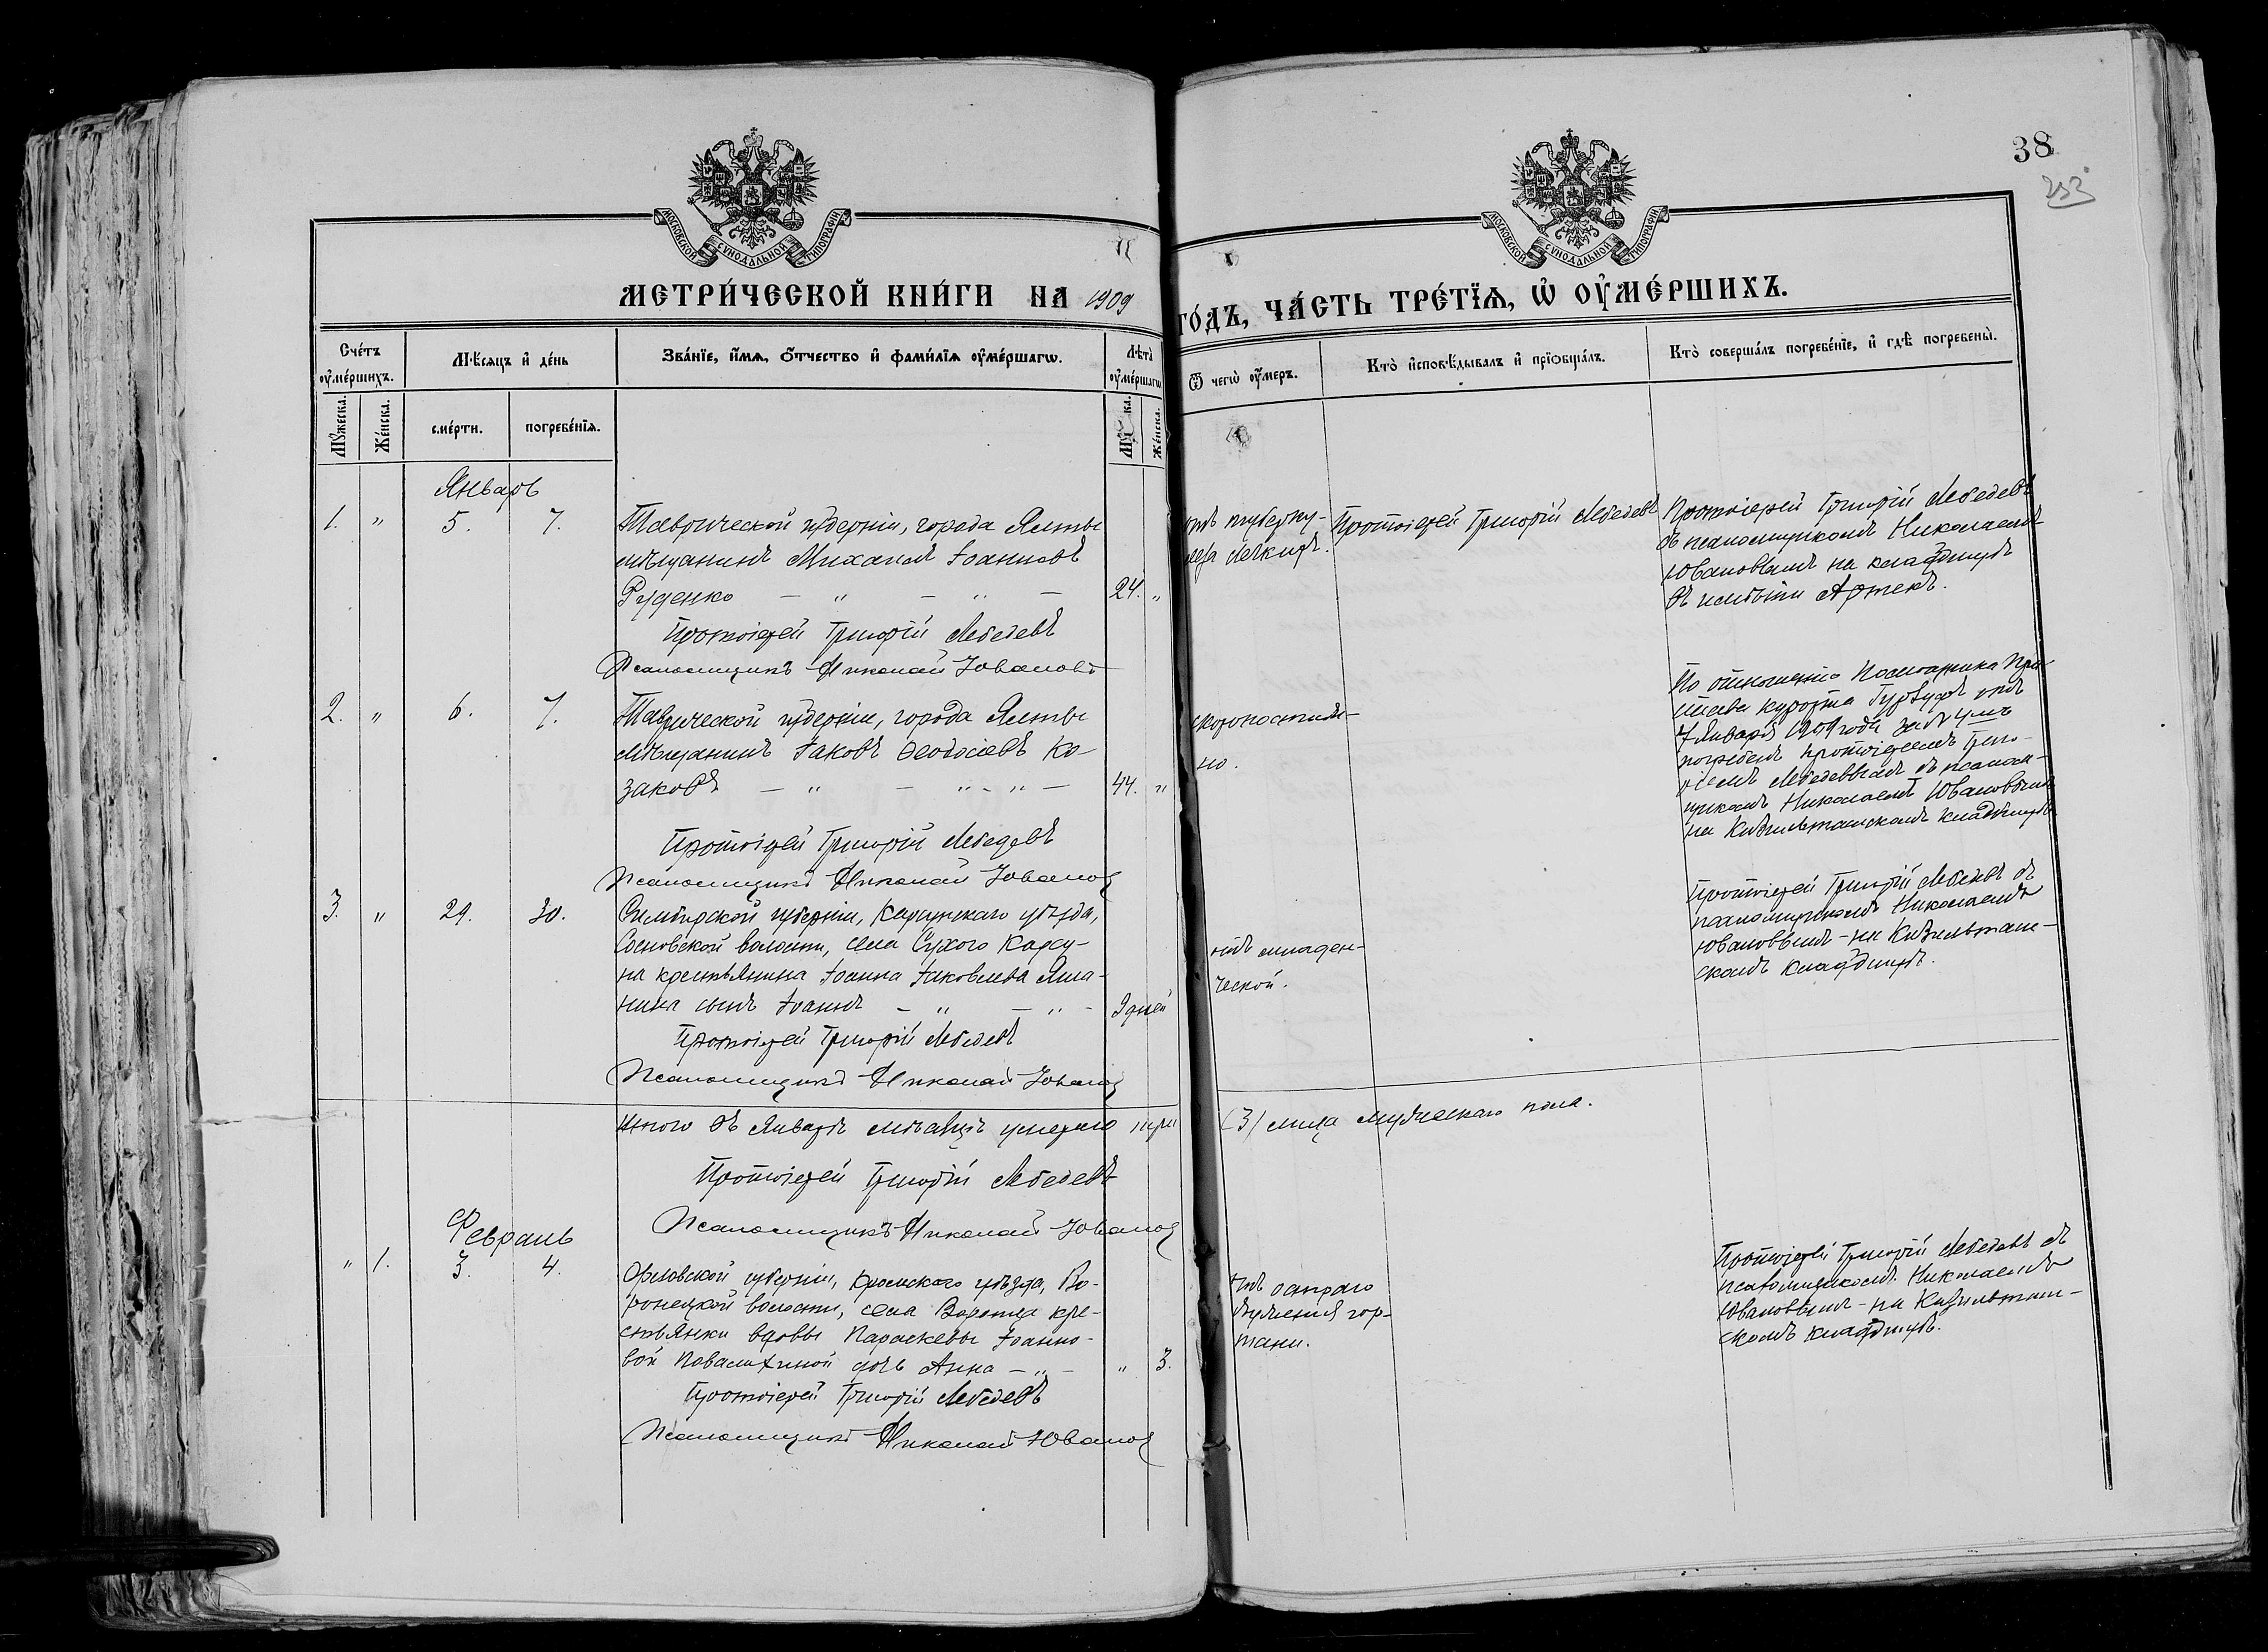 38
253
МОСКОВСКОЙ СѴНОДАЛЬНОЙ ТИПОГРАФІИ
МОСКОВСКОЙ СѴНОДАЛЬНОЙ ТИПОГРАФІИ
МЕТРИ́ЧЕСКОЙ КНИ́ГИ НА 1909
ГО́ДЪ, ЧА́СТЬ ТРЕ́ТЇѦ, Ѡ҆ ОУ҆МЕ́РШИХЪ.
Сче́тъ оу҆ме́ршихъ.
Мѣ́сяцъ и҆ де́нь
Зва́нїе, и҆́мѧ, ѻ҆́тчество и҆ фами́лїѧ оу҆ме́ршагѡ.
Лѣта̀ оу҆ме́ршагѡ
Ѿ чегѡ̀ оу҆́меръ.
Кто̀ и҆сповѣ́дывалъ и҆ прїѡбща́лъ.
Кто̀ соверша́лъ погребе́нїе, и҆ гдѣ̀ погребены̀.
Мꙋ́жеска.
Же́нска.
сме́рти.
погребе́нїѧ.
Же́нска.
Январь
1. " 5. 7.
Таврической губерніи, города Ялты
мѣщанинъ Михаилъ Іоанновъ
Руденко — " — " — 24. "
Протоіерей Григорій Лебедевъ
Псаломщикъ Николай Ювановъ
отъ туберку-
леза легкихъ.
Протоіерей Григорій Лебедевъ
Протоіерей Григорій Лебедевъ
съ псаломщикомъ Николаемъ
Ювановымъ на кладбищѣ
въ имѣніи Артекъ.
2. " 6. 7.
Таврической губерніи, города Ялты
мѣщанинъ Іаковъ Ѳеодосіевъ Ко-
заковъ — " — " - " — 44. "
Протоіерей Григорій Лебедевъ
Псаломщикъ Николай Юванов
скоропостиж-
но.
По отношенію Помощника При-
става курорта Гурзуфъ отъ
7 Января 1909 года за № 4мъ
погребенъ протоіереемъ Григо-
ріемъ Лебедевымъ съ псалом-
щикомъ Николаемъ Ювановымъ
на Кизильташскомъ кладбищѣ
3. " 29. 30.
Симбирской губерніи, Карсунскаго уѣзда,
Сосновской волости, села Сухого Карсу-
на крестьянина Іоанна Іаковлева Яма-
нина сынъ Іоаннъ — " — " - 9 дней
Протоіерей Григорій Лебедевъ
Псаломщикъ Николай Юванов
отъ младен-
ческой.
Протоіерей Григорій Лебедевъ съ
псаломщикомъ Николаемъ
Ювановымъ - на Кизильташ-
скомъ кладбищѣ.
Итого въ Январѣ мѣсяцѣ умерло три
(3) лица мужескаго пола.
Протоіерей Григорій Лебедевъ
Псаломщикъ Николай Юванов
Февраль
" 1. 3. 4.
Орловской губерніи, Кромского уѣзда, Во-
ронецкой волости, села Воронца кре-
стьянки вдовы Параскевы Іоанно-
вой Повалихиной дочь Анна — " — " 3.
Протоіерей Григорій Лебедевъ
Псаломщикъ Николай Юванов
отъ остраго
суженія гор-
тани.
Протоіерей Григорій Лебедевъ съ
псаломщикомъ Николаемъ
Ювановымъ - на Кизильташ-
скомъ кладбищѣ.